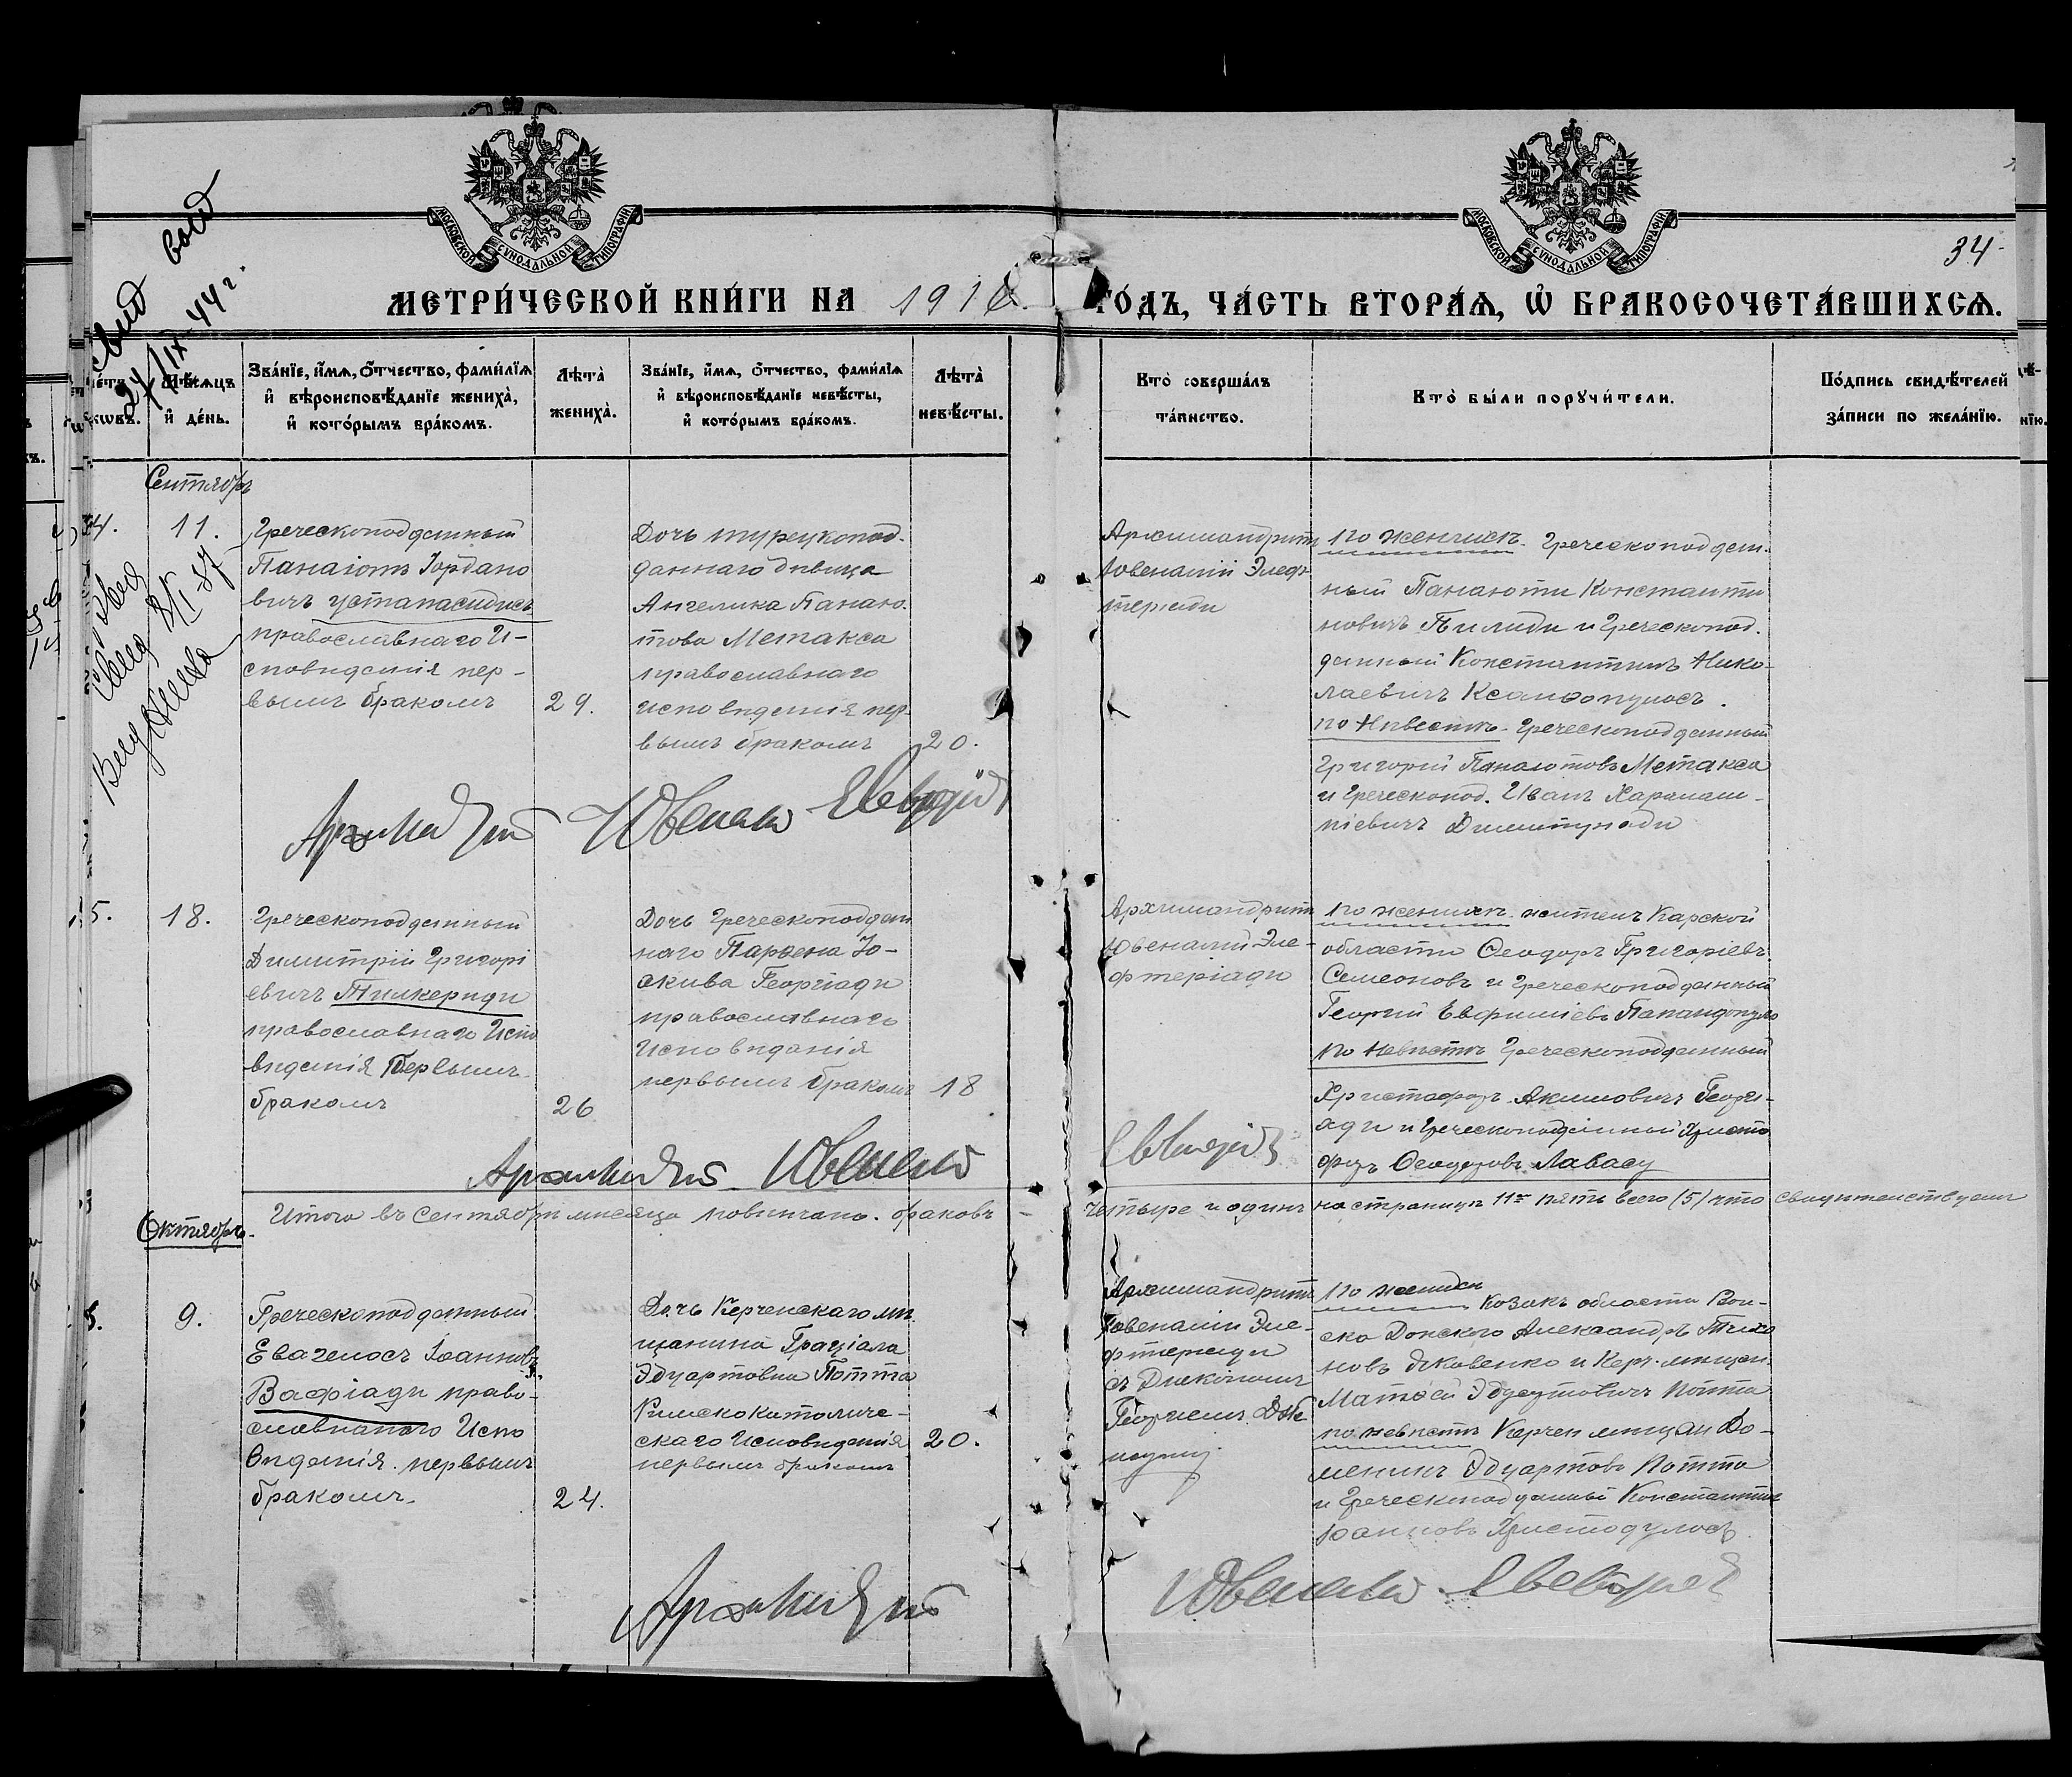 МОСКОВСКОЙ СѴНОДАЛЬНОЙ ТИПОГРАФІИ
МОСКОВСКОЙ СѴНОДАЛЬНОЙ ТИПОГРАФІИ
34
МЕТРИ́ЧЕСКОЙ КНИ́ГИ НА 1916 ГО́ДЪ, ЧА́СТЬ ВТОРА́Ѧ, Ѡ҆ БРАКОСОЧЕТА́ВШИХСѦ.
24/IX-44 г.
Мѣ́сѧцъ
и҆ де́нь.
Зва́нїе, и҆́мѧ, ѻ҆́тчество, фами́лїѧ
и҆ вѣроисповѣ́данїе жениха̀,
и҆ кото́рымъ бра́комъ.
Лѣта̀
жениха̀.
Зва́нїе, и҆́мѧ, ѻ҆́тчество, фами́лїѧ
и҆ вѣроисповѣ́данїе невѣ́сты,
и҆ кото́рымъ бра́комъ.
Лѣта̀
невѣ́сты.
Кто̀ соверша́лъ
та́инство.
Кто̀ бы́ли порꙋчи́тели.
По́дпись свидѣ́телей
за́писи по жела́нїю.
Сентябрь
11.
Греческоподданный
Панаіотъ Іордано
вичъ Устапасидисъ
православнаго И-
сповѣданія пер-
вымъ бракомъ
29.
Дочь турецкопод-
даннаго дѣвица
Ангелика Панаю-
това Метакса
православнаго
исповѣданія пер-
вымъ бракомъ
20.
Архимандритъ
Ювеналій Элеф-
теріади
по женихѣ. Греческоподдан-
ный Панаюти Константи
новичъ Пилиди и Греческопод.
данный Константинъ Нико-
лаевичъ Ксанфопулосъ.
по Невѣстѣ. Греческоподданный
Григорій Панаіотовъ Метакса
и Греческопод. Иванъ Харалам-
піевичъ Димитриади
5.
18.
Греческоподданный
Димитрій Григорі
евичъ Тилкериди
православнаго Испо
вѣданія Первымъ
бракомъ
26
Дочь Греческоподдан
наго Парѳена Іо-
акива Георгіади
православнаго
Исповѣданія
первымъ бракомъ
18
Архимандритъ
Ювеналій Эле-
фтеріади
по женихѣ. житель Карской
области Ѳеодоръ Григоріевъ
Семеоновъ и Греческоподданный
Георгій Евфиміевъ Папандопуло
по Невѣстѣ Греческоподданный
Христофоръ Акимовичъ Георгі-
ади и Греческоподданный Христо
форъ Ѳеодоровъ Лаваси
Итого въ Сентябрѣ мѣсяцѣ повѣнчано браковъ четыре и одинъ на страницѣ 11й пять всего (5) что свидѣтельствуемъ
Октябрь.
9.
Греческоподданный
Евагелосъ Іоанновъ
Вафіади право-
славнаго Испо
вѣданія первымъ
бракомъ.
24.
Дочь Керченскаго мѣ-
щанина Граціала
Эдуартовна Потта
Римскокатоличе-
скаго Исповѣданія
первымъ бракомъ
20.
Архимандритъ
Ювеналій Эле-
фтеріади
съ Діакономъ
Георгіемъ
по женихѣ
Козакъ области Вой-
ска Донскаго Александръ Тихо
новъ Яковенко и Керч. мѣщан.
Матѳей Эдуартовичъ Потта
по невѣстѣ Керчен мѣщан До-
меникъ Эдуартовъ Потта
и Греческоподданный Константинъ
Іоанновъ Христодулосъ.